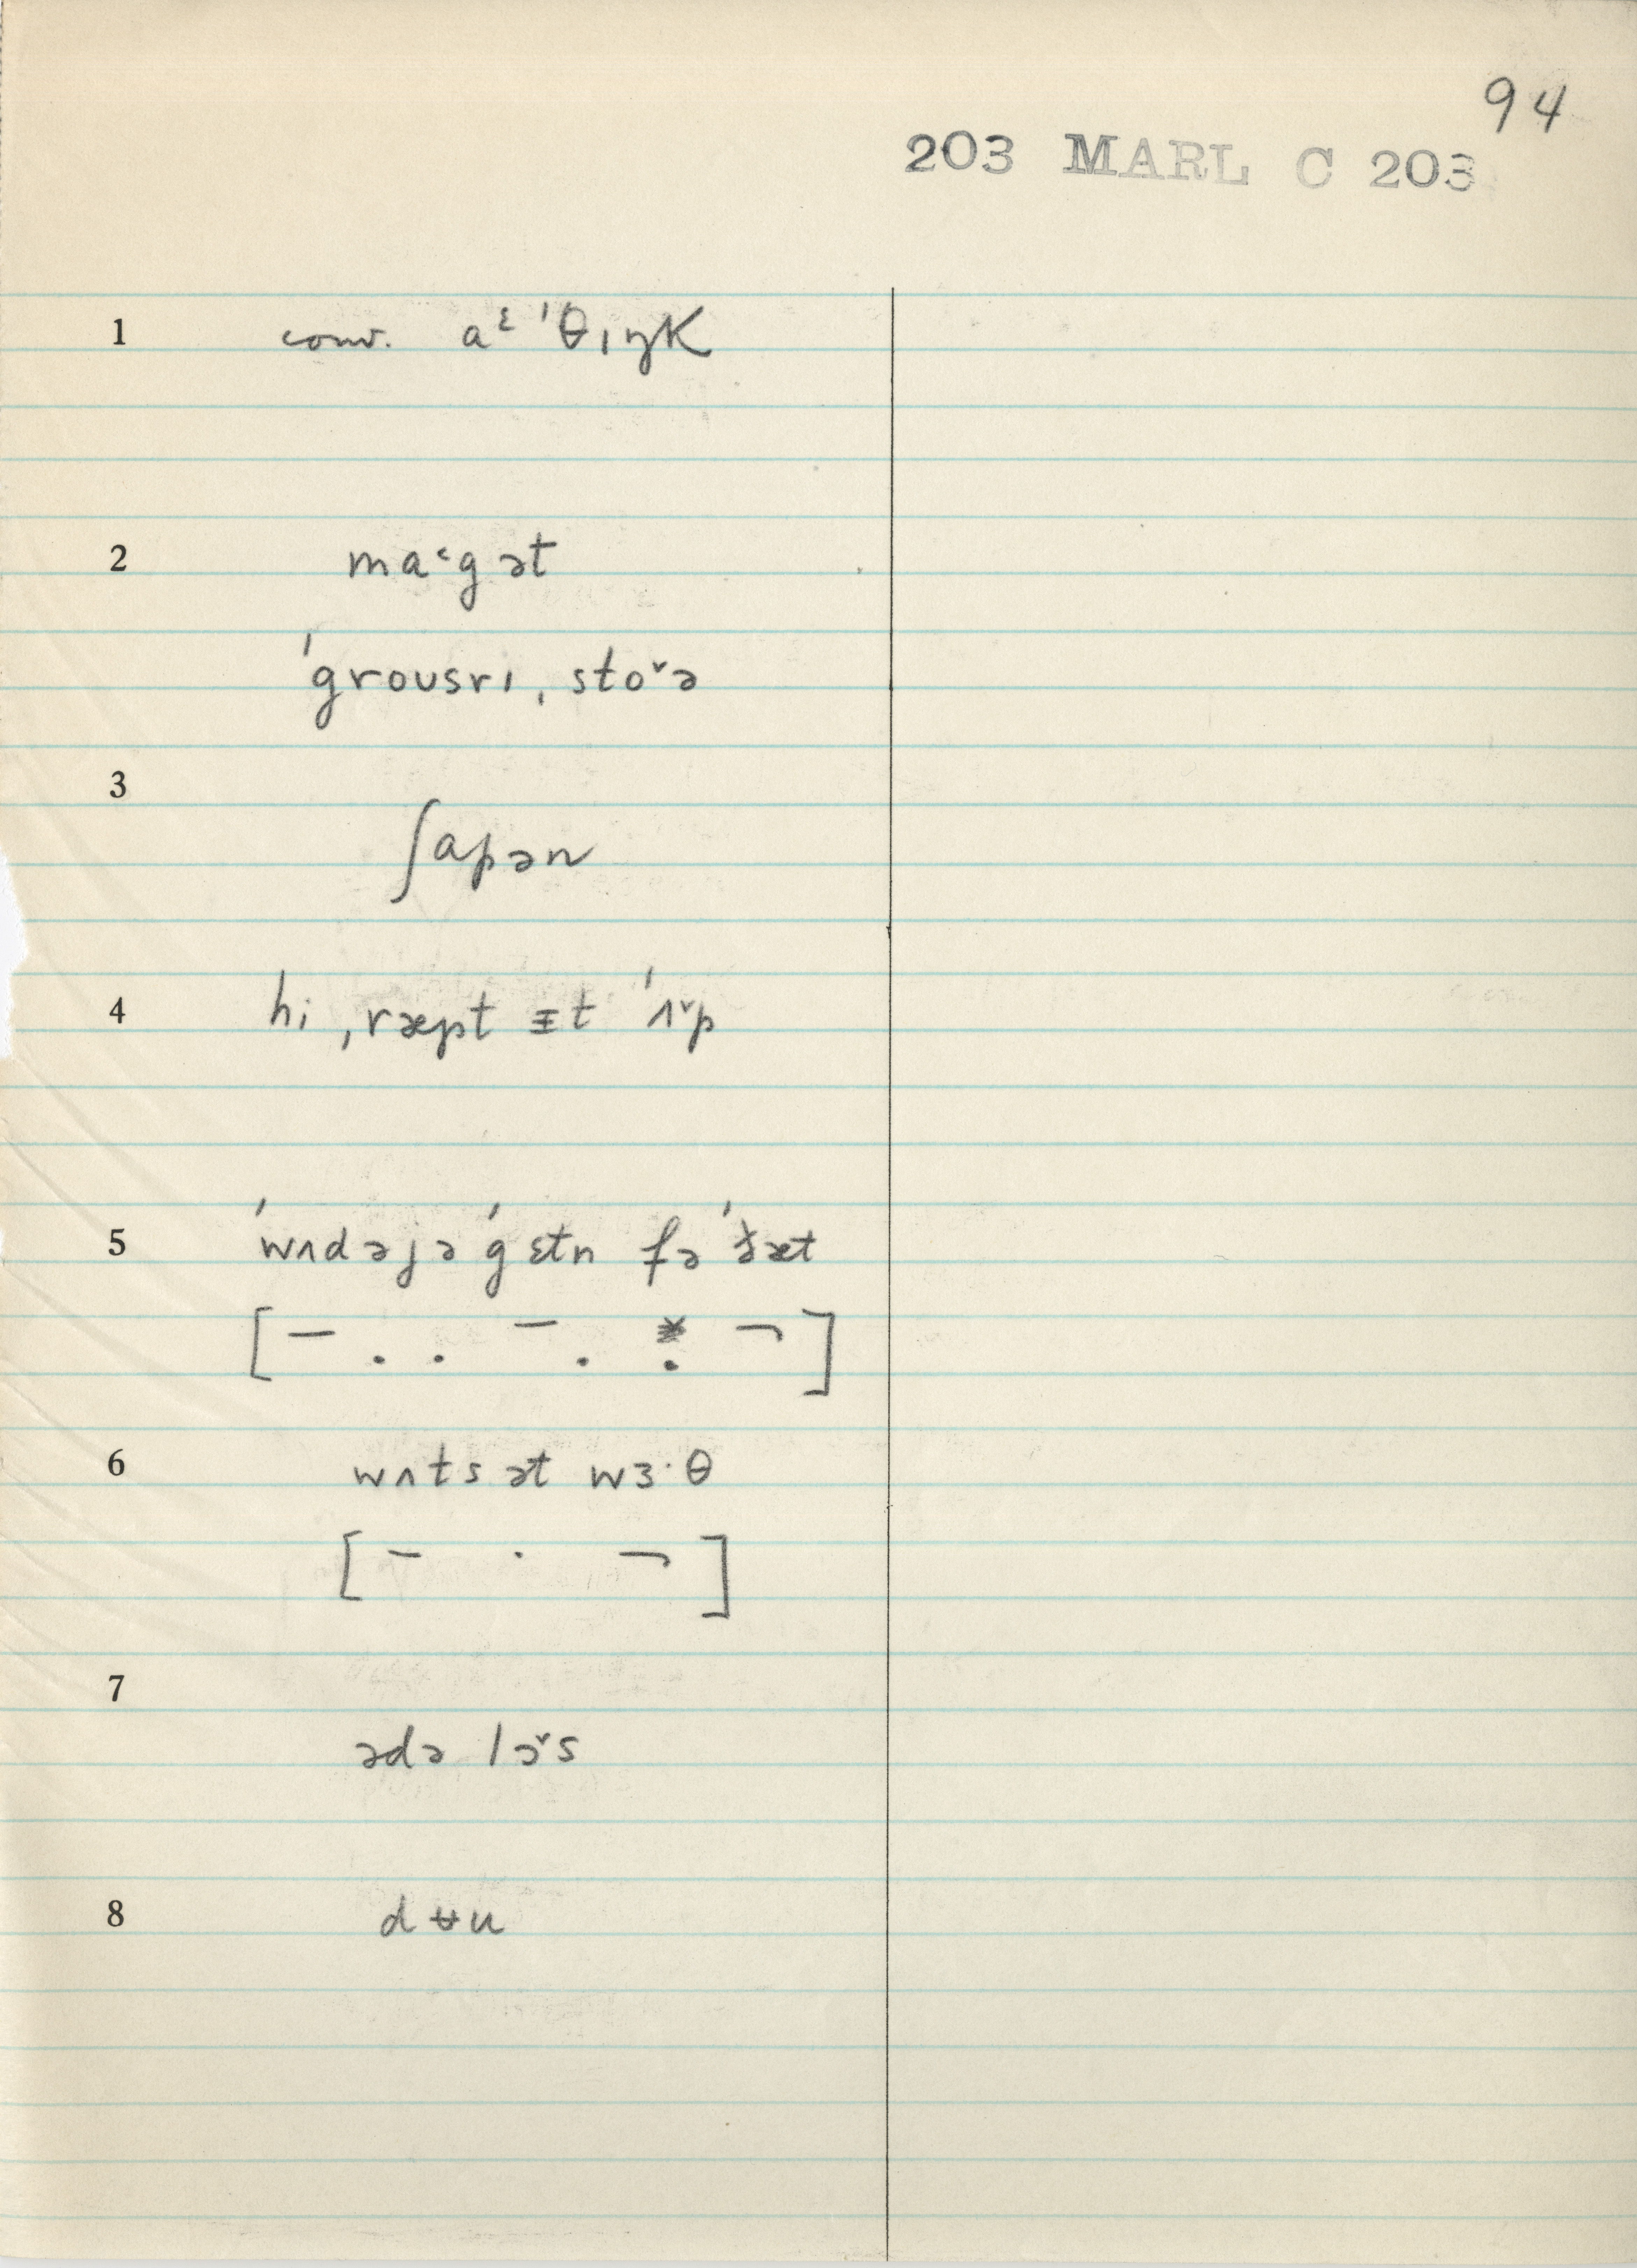 94
203 MARL C 203
1 conv. aᵋ ˈθɪŋk
2 ma˂gət
ˈgroʊsrɪ ˌstoˇə
3 ʃapən
4 hi ˌræpt ɪt ˈʌˇp
5 ˈwʌdəjəˈgɛtn fəˈðæt
[ – . . – . . ¬ ]
6 wʌts ət wɜ·θ
[ – · ¬ ]
7 ədə lɔˇs
8 dʉu